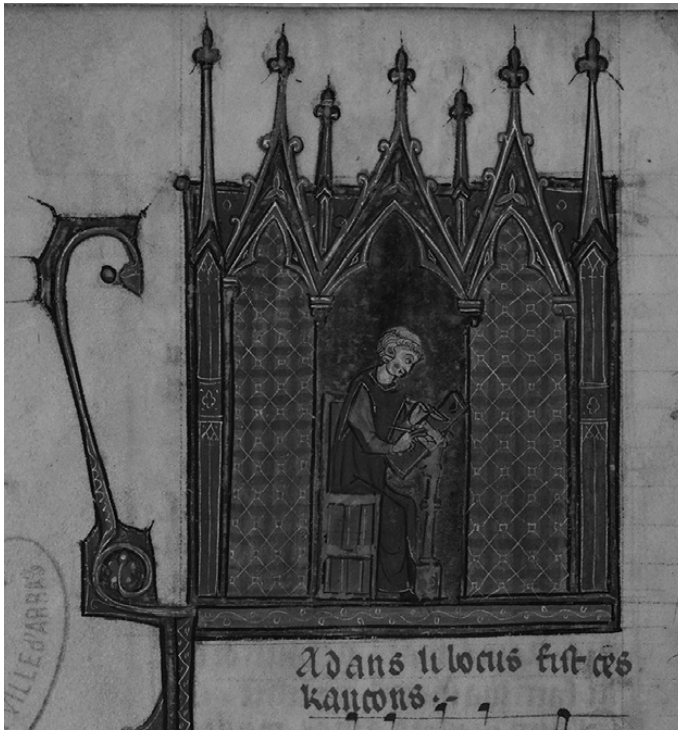 VILLE d'ARRAS
Adans li bocus fist ces
kancons :~